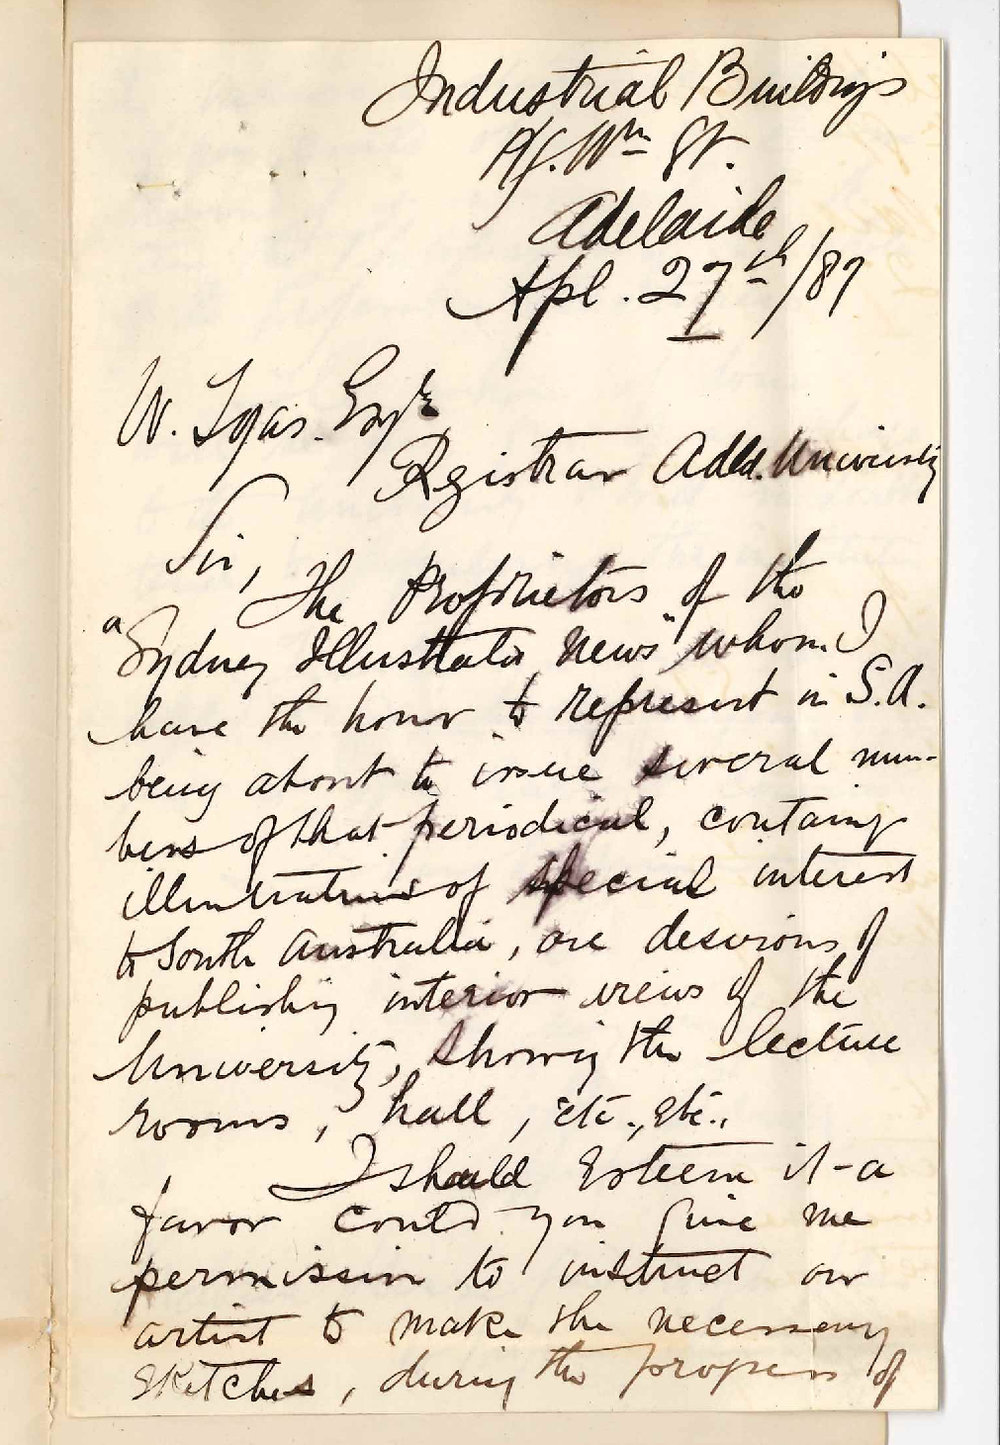 Industrial Buildings
Kg. Wm St.
Adelaide
Apl. 27th/87
W. Tyas. Esqre
Registrar Adeld. University
Sir,
The Proprietors of the
"Sydney Illustrated News" whom I
have the honor to represent in S.A.
being about to issue several num-
bers of that periodical, containg
illustrations of special interest
to South Australia, are desirous of
publishing interior views of the
University, showing the lecture
rooms, hall, etc., etc.,
I should esteem it a
favor could you give me
permission to instruct our
artist to make the necessary
sketches, during the progress of